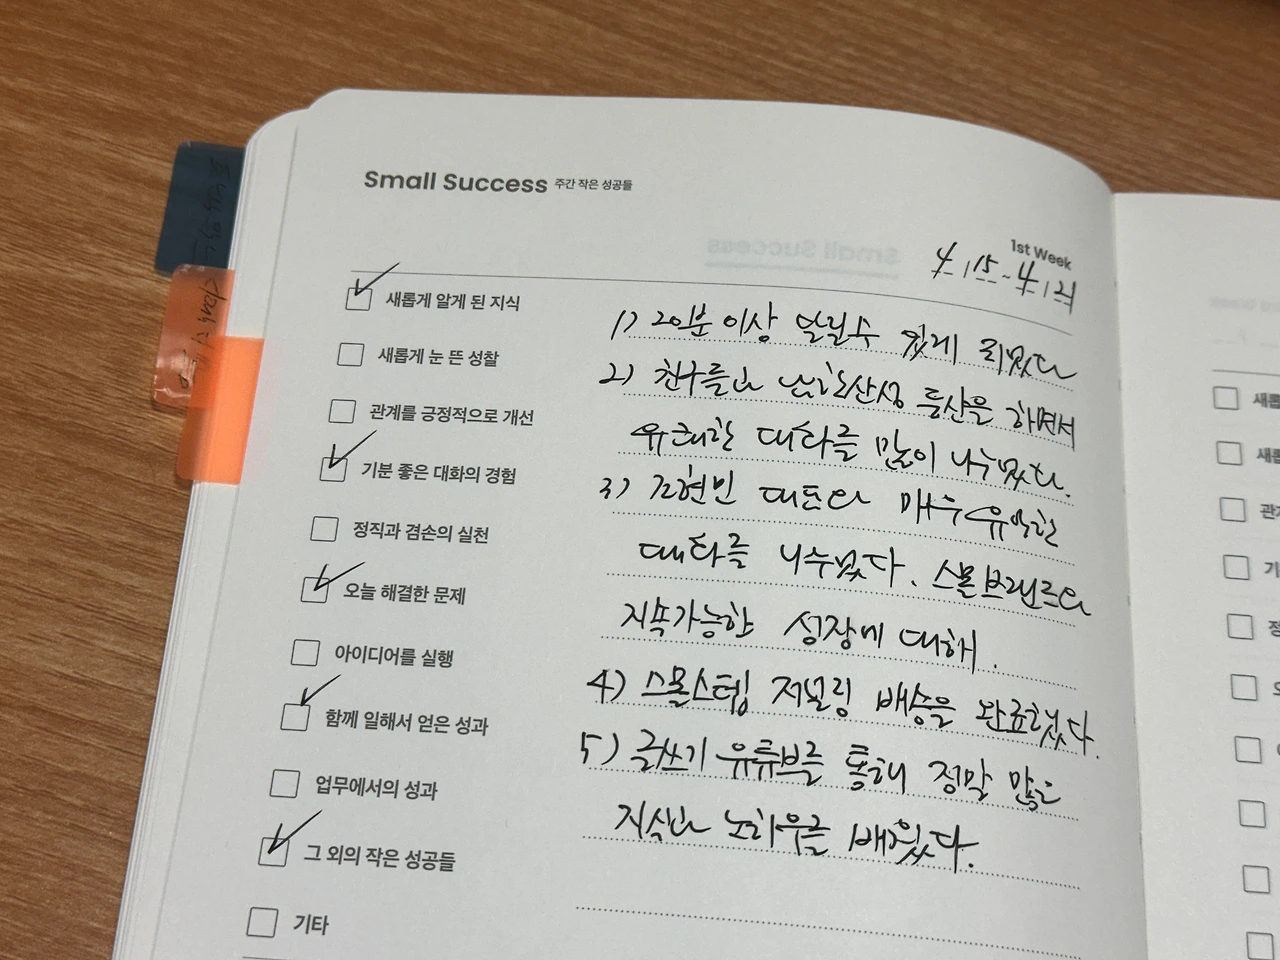 Small Success 주간 작은 성공들
1st Week
4.15-4.21
새롭게 알게 된 지식
새롭게 눈 뜬 성찰
관계를 긍정적으로 개선
기분 좋은 대화의 경험
정직과 겸손의 실천
오늘 해결한 문제
아이디어를 실행
함께 일해서 얻은 성과
업무에서의 성과
그 외의 작은 성공들
기타
1) 20분 이상 달릴수 있게 되었다
2) 친구들과 남한산성 등산을 하면서
유쾌한 대화를 많이 나누었다.
3) 조현민 대표와 매우 유익한
대화를 나누었다. 스몰 브랜드의
지속가능한 성장에 대해.
4) 스몰스텝 저널링 배송을 완료했다.
5) 글쓰기 유튜브를 통해 정말 많은
지식과 노하우를 배웠다.
새롭
새롭
관계
기
정